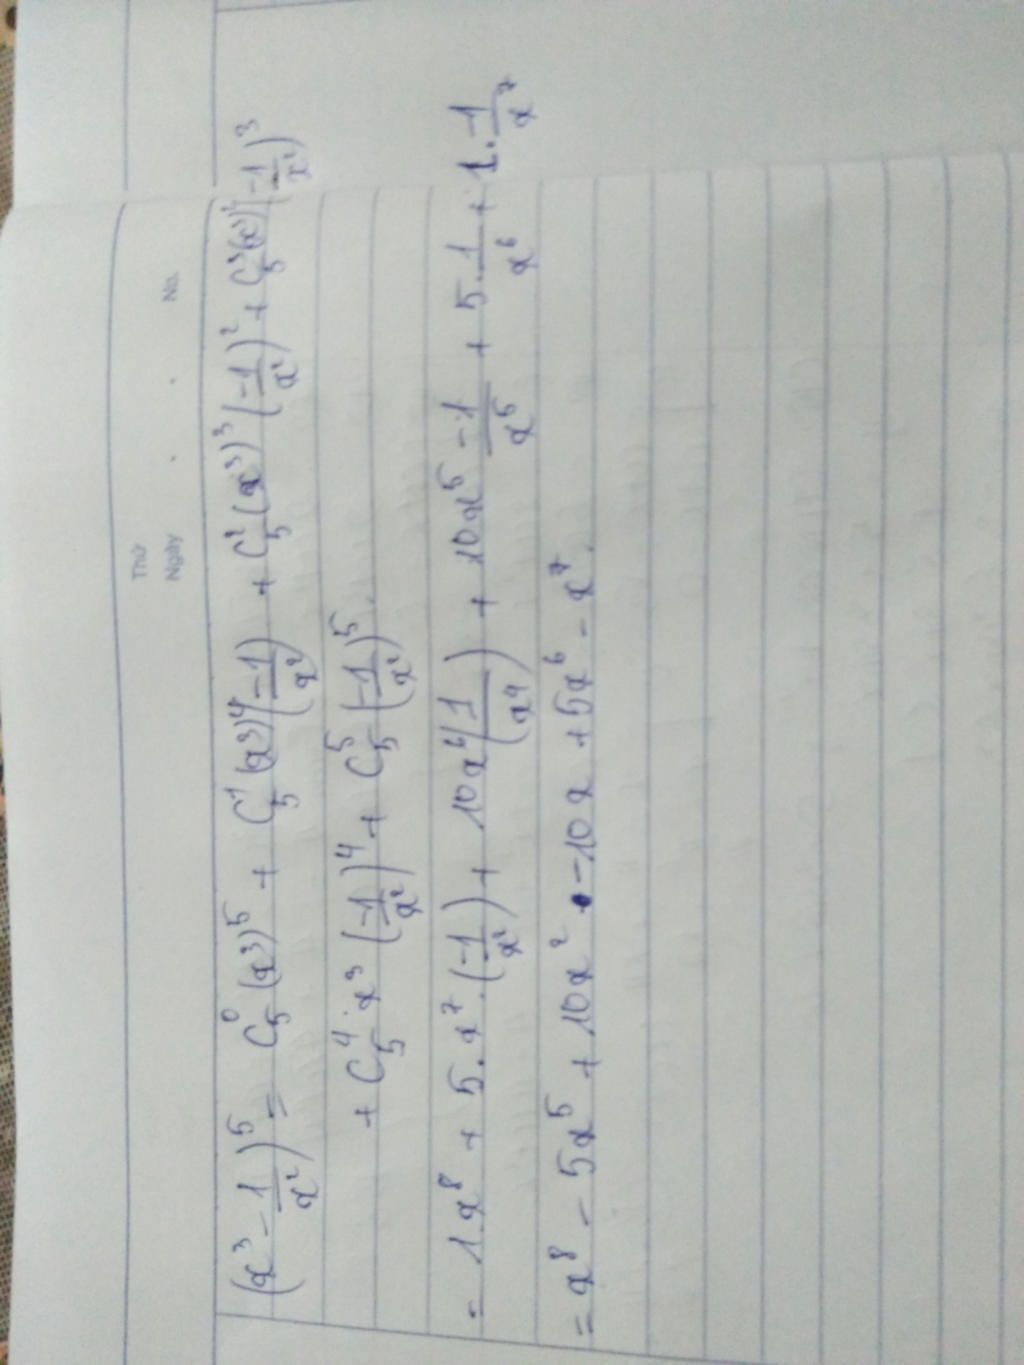 Thứ
Ngày . . No.
(x³ - 1/x²)⁵ = C₅⁰ (x³)⁵ + C₅¹ (x³)⁴ (-1/x²) + C₅² (x³)³ (-1/x²)² + C₅³ (x³)² (-1/x²)³
+ C₅⁴ . x³ (-1/x²)⁴ + C₅⁵ (-1/x²)⁵.
= 1.x⁸ + 5.x⁷.(-1/x²) + 10x⁶(1/x⁴) + 10x⁵ -1/x⁵ + 5.1/x⁶ + 1.-1/x⁷
= x⁸ - 5x⁵ + 10x² - 10x + 5x⁶ - x⁷.